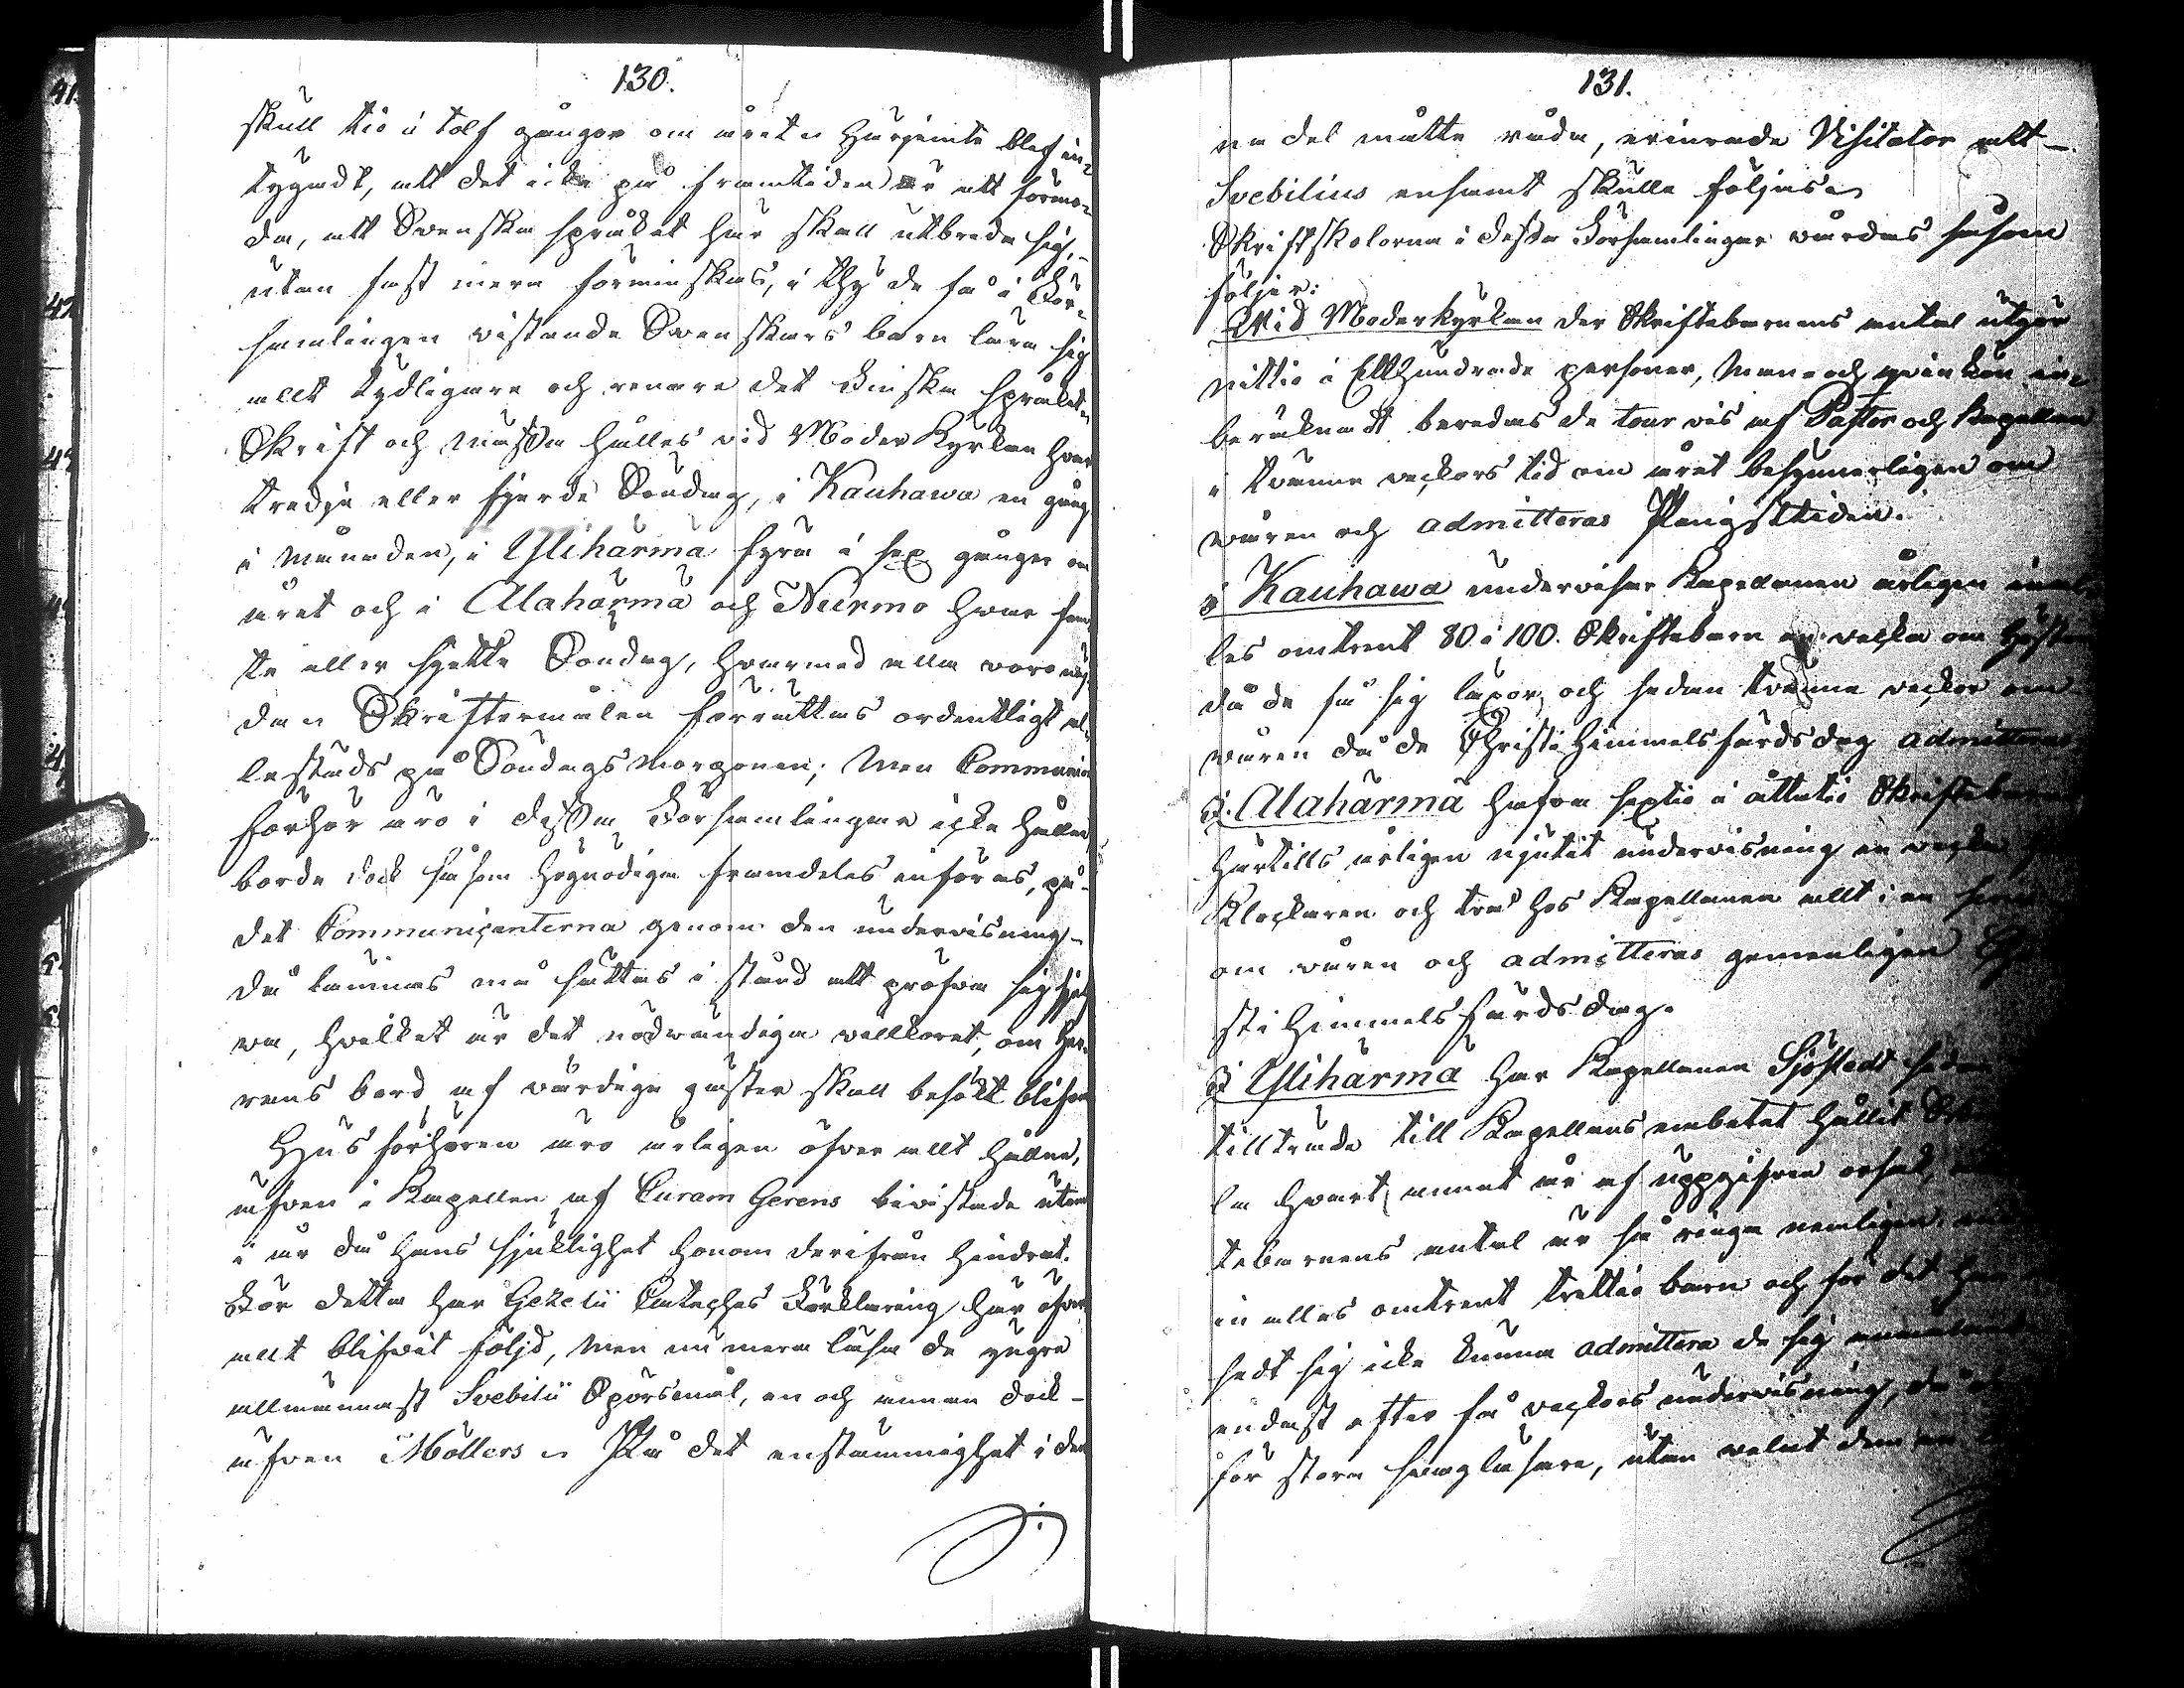 130.
skull tio à tolf gånger om året. Härjemte blef in-
tygadt, att det icke på framtiden är att förmo-
da, att Svenska språket här skall utbreda sig,
utan fast mera förminskas, i thy de få i För-
samlingen vistande Svenskars barn lära sig
allt tydligare och renare det Finska språket.
Skrift och Mässa hålles vid Moder Kyrkan hvar
tredje eller fjerde Söndag, i Kauhawa en gång
i månaden, i Ylihärmä fyra à sex gånger om
året och i Alahärmä och Nurmo hvar fem-
te eller sjette Söndag, hvarmed alla voro nöj-
da. Skriftermålen förrättas ordentligt al-
lestäds på Söndags morgonen; Men Communion
förhör äro i dessa Församlingar icke hållne
borde dock såsom högnödiga framdeles införas, på
det Communicanterna genom den undervisning
då lämnas må sättas i stånd att pröfva sig sjelf-
va, hvilket är det nödwändiga vilkoret, om Her-
rens bord af wärdiga gäster skall besökt blifva
Husförhören äro årligen öfver allt hållne,
äfven i Kapellen af Curam Gerens bivistade utom
i år då hans sjuklighet honom derifrån hindrat.
För detta har Gezelii Cateches Förklaring här öfver
allt blifvit följd, men numera läsa de yngre
allmännast Svebilii Spörsmål, en och annan dock
äfven Möllers. På det enstämmighet i den
131.
na del måtte råda, erinrade Visitator att
Svebilius ensamt skulle följas.
Skriftskolorna i dessa Församlingar wårdas såsom
följer:
Wid Moderkyrkan der Skriftebarnens antal utgör
nittio à Etthundrade personer, Man- och qvinkön in-
beräknadt beredas de tour vis af Pastor och Kapellan
i tvänne veckors tid om året besynnerligen om
wåren och admitteras Pingsttiden.
I Kauhawa underviser Kapellanen årligen inal-
les omtrent 80 à 100. Skriftebarn en vecka om Hösten
då de få sig läxor, och sedan tvänne veckor om
wåren då de Christi Himmelsfärdsdag admitteras
I Alahärmä hafva sextio à åttatio Skriftebarn
härtills årligen njutit undervisning en vecka
Klockaren och två hos Kapellanen allt i en
om våren och admitteras gemenligen
sti Himmelsfärdsdag.
I Ylihärmä har Kapellanen Sjöstedt sedan
tillträde till Kapellans embetet hållit
la hvart annat år af uppgifven orsak,
tebarnens antal är så ringa nemligen
in alles omtrent trettio barn och för det han
sedt sig icke kunna admittera de sig anmälande
endast efter få veckors undervisning, då
för stora svagläsare, utan velat dem